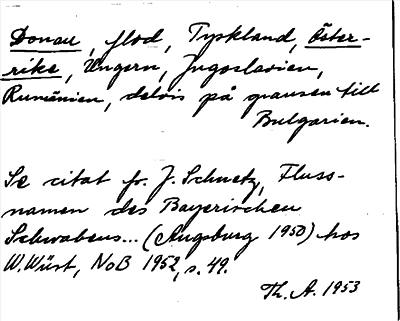 Donau, flod, Tyskland, Öster-
rike, Ungern, Jugoslavien,
Rumänien, delvis på gränsen till
Bulgarien.
Se citat fr. J. Schnetz, Fluss-
namen des Bayerischen
Schwabens... (Augsburg 1950) hos
W. Wüst, NoB 1952, s. 49.
Th. A. 1953